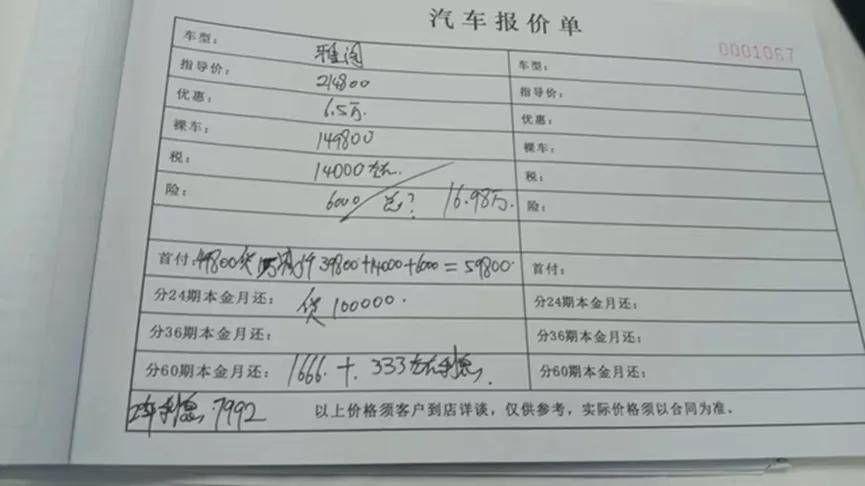 汽车报价单
0001067
车型: 雅阁 车型:
指导价: 214800 指导价:
优惠: 6.5万. 优惠:
裸车: 149800 裸车:
税: 14000左右. 税:
险: 6000 总? 16.98万. 险:
首付: 49800 39800+14000+6000=59800. 首付:
分24期本金月还: 贷100000. 分24期本金月还:
分36期本金月还: 分36期本金月还:
分60期本金月还: 1666.+333左右利息. 分60期本金月还:
2年利息:7992 以上价格须客户到店详谈,仅供参考,实际价格须以合同为准。